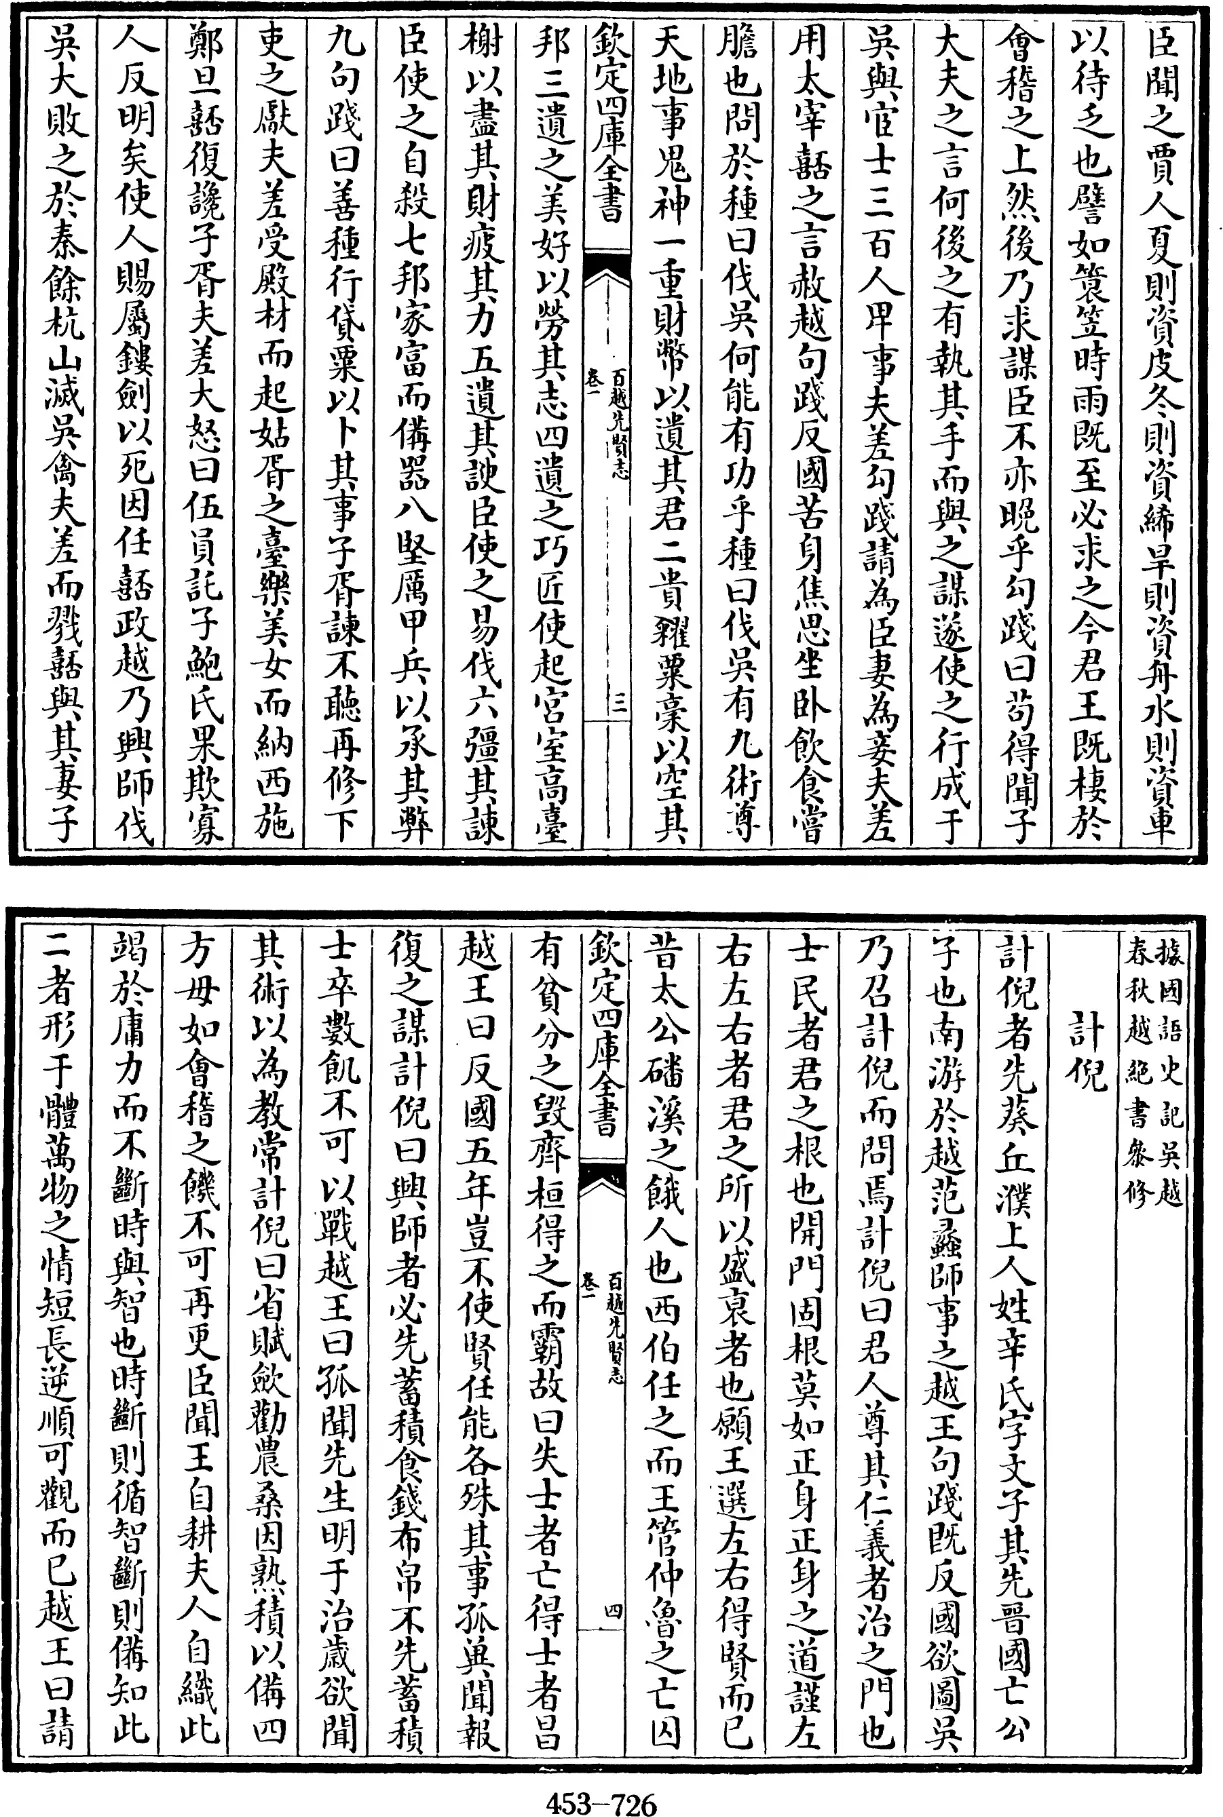 臣聞之賈人夏則資皮冬則資絺旱則資舟水則資車
以待乏也譬如簑笠時雨既至必求之今君王既棲於
會稽之上然後乃求謀臣不亦晚乎勾踐曰苟得聞子
大夫之言何後之有執其手而與之謀遂使之行成于
吳與宦士三百人早事夫差勾踐請為臣妻為妾夫差
用太宰嚭之言赦越句踐反國苦身焦思坐卧飲食嘗
膽也問於種曰伐吳何能有功乎種曰伐吳有九術尊
天地事鬼神一重財幣以遺其君二貴糴粟槀以空其
欽定四庫全書
百越先賢志
卷一
三
邦三遺之美好以勞其志四遺之巧匠使起宮室高臺
榭以盡其財疲其力五遺其諛臣使之易伐六彊其諫
臣使之自殺七邦家富而備器八堅厲甲兵以承其弊
九句踐曰善種行貸粟以卜其事子胥諫不聽再修下
吏之獻夫差受殿材而起姑胥之臺樂美女而納西施
鄭旦嚭復讒子胥夫差大怒曰伍員託子鮑氏果欺寡
人反明矣使人賜屬鏤劍以死因任嚭政越乃興師伐
吳大敗之於秦餘杭山滅吳禽夫差而戮嚭與其妻子
據國語史記吳越
春秋越絶書叅修
計倪
計倪者先葵丘濮上人姓辛氏字文子其先晉國亡公
子也南游於越范蠡師事之越王句踐既反國欲圖吳
乃召計倪而問焉計倪曰君人尊其仁義者治之門也
士民者君之根也開門固根莫如正身正身之道謹左
右左右者君之所以盛衰者也願王選左右得賢而已
昔太公磻溪之餓人也西伯任之而王管仲魯之亡囚
欽定四庫全書
百越先賢志
卷一
四
有貧分之毀齊桓得之而霸故曰失士者亡得士者昌
越王曰反國五年豈不使賢任能各殊其事孤兾聞報
復之謀計倪曰興師者必先蓄積食錢布帛不先蓄積
士卒數飢不可以戰越王曰孤聞先生明于治歲欲聞
其術以為教常計倪曰省賦歛勸農桑因熟積以備四
方毋如會稽之饑不可再更臣聞王自耕夫人自織此
竭於庸力而不斷時與智也時斷則循智斷則備知此
二者形于體萬物之情短長逆順可觀而已越王曰請
453-726